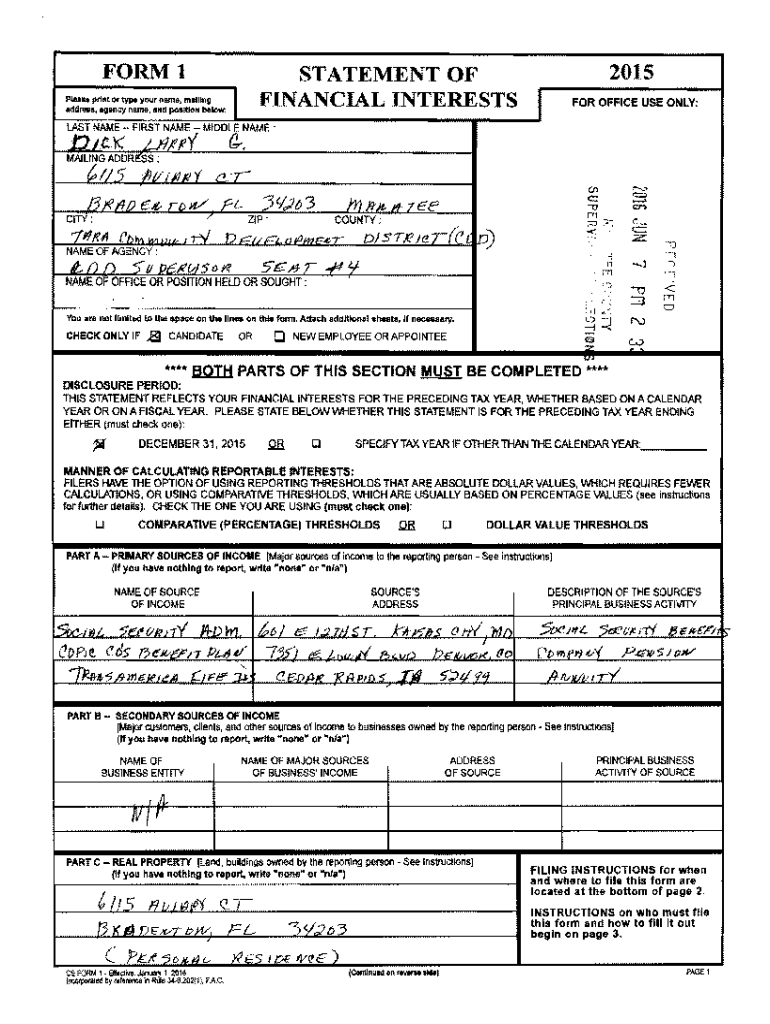 FORM 1
STATEMENT OF
FINANCIAL INTERESTS
2015
Please print or type your name, mailing
address, agency name, and position below:
FOR OFFICE USE ONLY:
LAST NAME -- FIRST NAME -- MIDDLE NAME :
DICK LARRY G.
MAILING ADDRESS :
6115 AVIARY CT
BRADENTON, FL 34203 MANATEE
CITY : ZIP : COUNTY :
TARA COMMUNITY DEVELOPMENT DISTRICT (CDD)
NAME OF AGENCY :
CDD SUPERVISOR SEAT #4
NAME OF OFFICE OR POSITION HELD OR SOUGHT :
You are not limited to the space on the lines on this form. Attach additional sheets, if necessary.
CHECK ONLY IF CANDIDATE OR NEW EMPLOYEE OR APPOINTEE
2016 JUN 7 PM 2 33
**** BOTH PARTS OF THIS SECTION MUST BE COMPLETED ****
DISCLOSURE PERIOD:
THIS STATEMENT REFLECTS YOUR FINANCIAL INTERESTS FOR THE PRECEDING TAX YEAR, WHETHER BASED ON A CALENDAR
YEAR OR ON A FISCAL YEAR. PLEASE STATE BELOW WHETHER THIS STATEMENT IS FOR THE PRECEDING TAX YEAR ENDING
EITHER (must check one):
DECEMBER 31, 2015 OR SPECIFY TAX YEAR IF OTHER THAN THE CALENDAR YEAR:
MANNER OF CALCULATING REPORTABLE INTERESTS:
FILERS HAVE THE OPTION OF USING REPORTING THRESHOLDS THAT ARE ABSOLUTE DOLLAR VALUES, WHICH REQUIRES FEWER
CALCULATIONS, OR USING COMPARATIVE THRESHOLDS, WHICH ARE USUALLY BASED ON PERCENTAGE VALUES (see instructions
for further details). CHECK THE ONE YOU ARE USING (must check one):
COMPARATIVE (PERCENTAGE) THRESHOLDS OR DOLLAR VALUE THRESHOLDS
PART A -- PRIMARY SOURCES OF INCOME [Major sources of income to the reporting person - See instructions]
(If you have nothing to report, write "none" or "n/a")
NAME OF SOURCE OF INCOME
SOURCE'S ADDRESS
DESCRIPTION OF THE SOURCE'S PRINCIPAL BUSINESS ACTIVITY
SOCIAL SECURITY ADM. 601 E 12TH ST. KANSAS CITY, MO SOCIAL SECURITY BENEFITS
COPIC COS BENEFIT PLAN 7351 E LOWRY BLVD DENVER, CO COMPANY PENSION
TRANSAMERICA LIFE INS CEDAR RAPIDS, IA 52499 ANNUITY
PART B -- SECONDARY SOURCES OF INCOME
[Major customers, clients, and other sources of income to businesses owned by the reporting person - See instructions]
(If you have nothing to report, write "none" or "n/a")
NAME OF BUSINESS ENTITY
NAME OF MAJOR SOURCES OF BUSINESS' INCOME
ADDRESS OF SOURCE
PRINCIPAL BUSINESS ACTIVITY OF SOURCE
N/A
PART C -- REAL PROPERTY [Land, buildings owned by the reporting person - See instructions]
(If you have nothing to report, write "none" or "n/a")
6115 AVIARY CT
BRADENTON, FL 34203
(PERSONAL RESIDENCE)
FILING INSTRUCTIONS for when
and where to file this form are
located at the bottom of page 2.
INSTRUCTIONS on who must file
this form and how to fill it out
begin on page 3.
CE FORM 1 - Effective: January 1, 2016
Incorporated by reference in Rule 34-8.202(1), F.A.C.
(Continued on reverse side)
PAGE 1